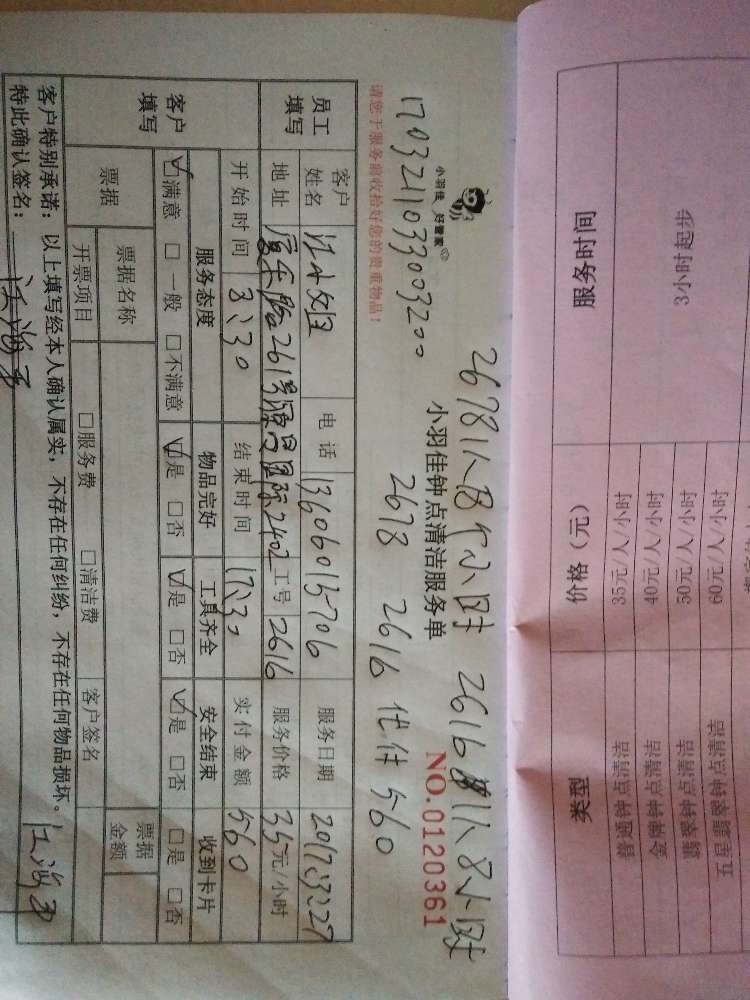 2678 1人8个小时 2616 1人8小时
小羽佳 好管家
小羽佳钟点清洁服务单
NO.0120361
1703211033003200
2678 2616 代付560
请您于服务前收拾好您的贵重物品!
员工填写
客户姓名 江小姐 电话 13606013706 服务日期 2017.3.27
地址 厦禾路261号 2402 工号 2616 服务价格 35元/小时
客户填写
开始时间 8:30 结束时间 17:30 实付金额 560
服务态度 物品完好 工具齐全 安全结束 收到卡片
☑满意 □一般 □不满意 ☑是 □否 ☑是 □否 ☑是 □否 □是 □否
票据 票据名称 票据金额
开票项目 □服务费 □清洁费 客户签名
客户特别承诺:以上填写经本人确认属实,不存在任何纠纷,不存在任何物品损坏。
特此确认签名:
服务时间 价格(元) 类型
3小时起步
35元/人/小时 普通钟点清洁
40元/人/小时 金牌钟点清洁
50元/人/小时 翡翠钟点清洁
60元/人/小时 五星翡翠钟点清洁